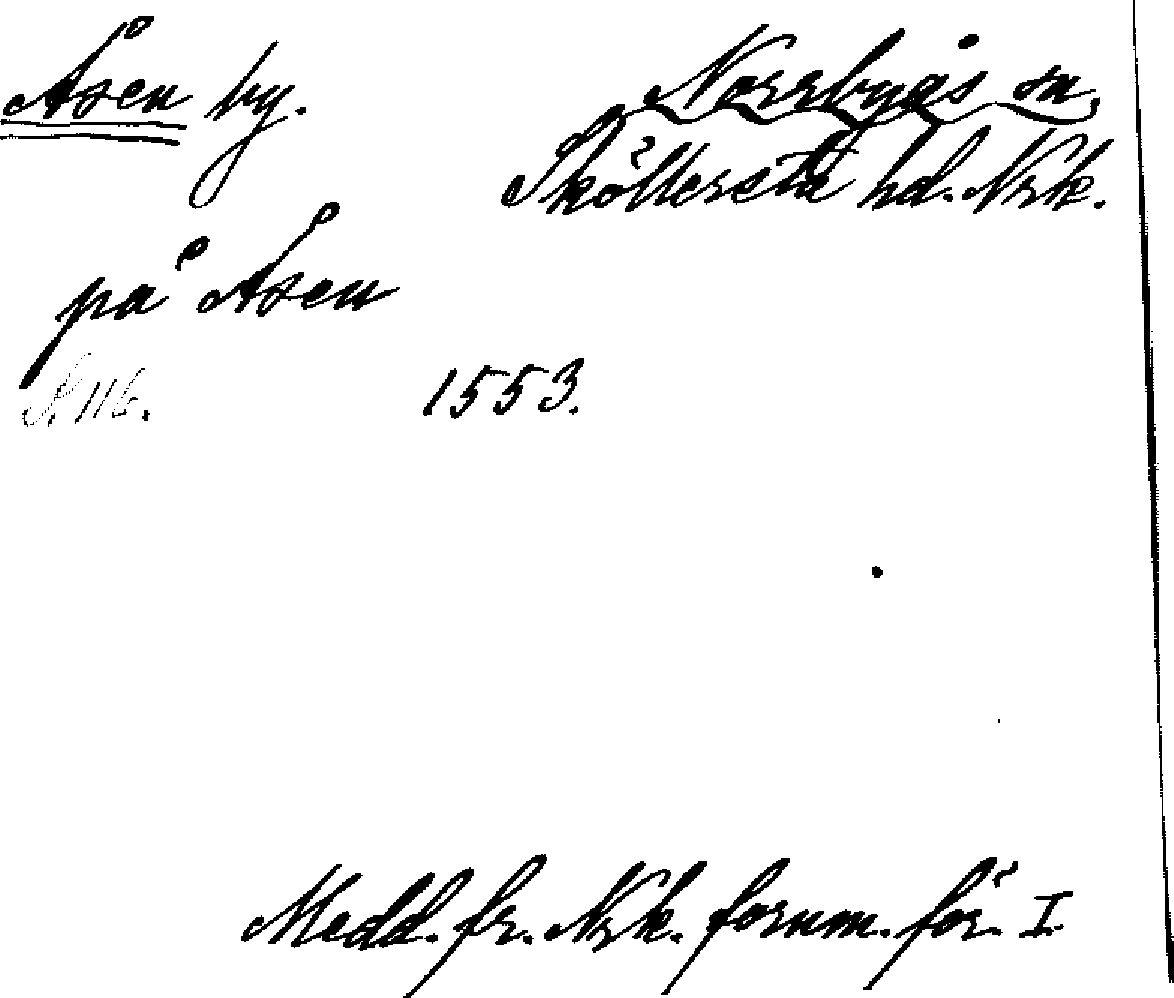 Åsen by.
Norrbyås sn,
Sköllersta hd. Nrk.
på Åsen
S. 116. 1553.
Medd. fr. Nrk. fornm. för. I.